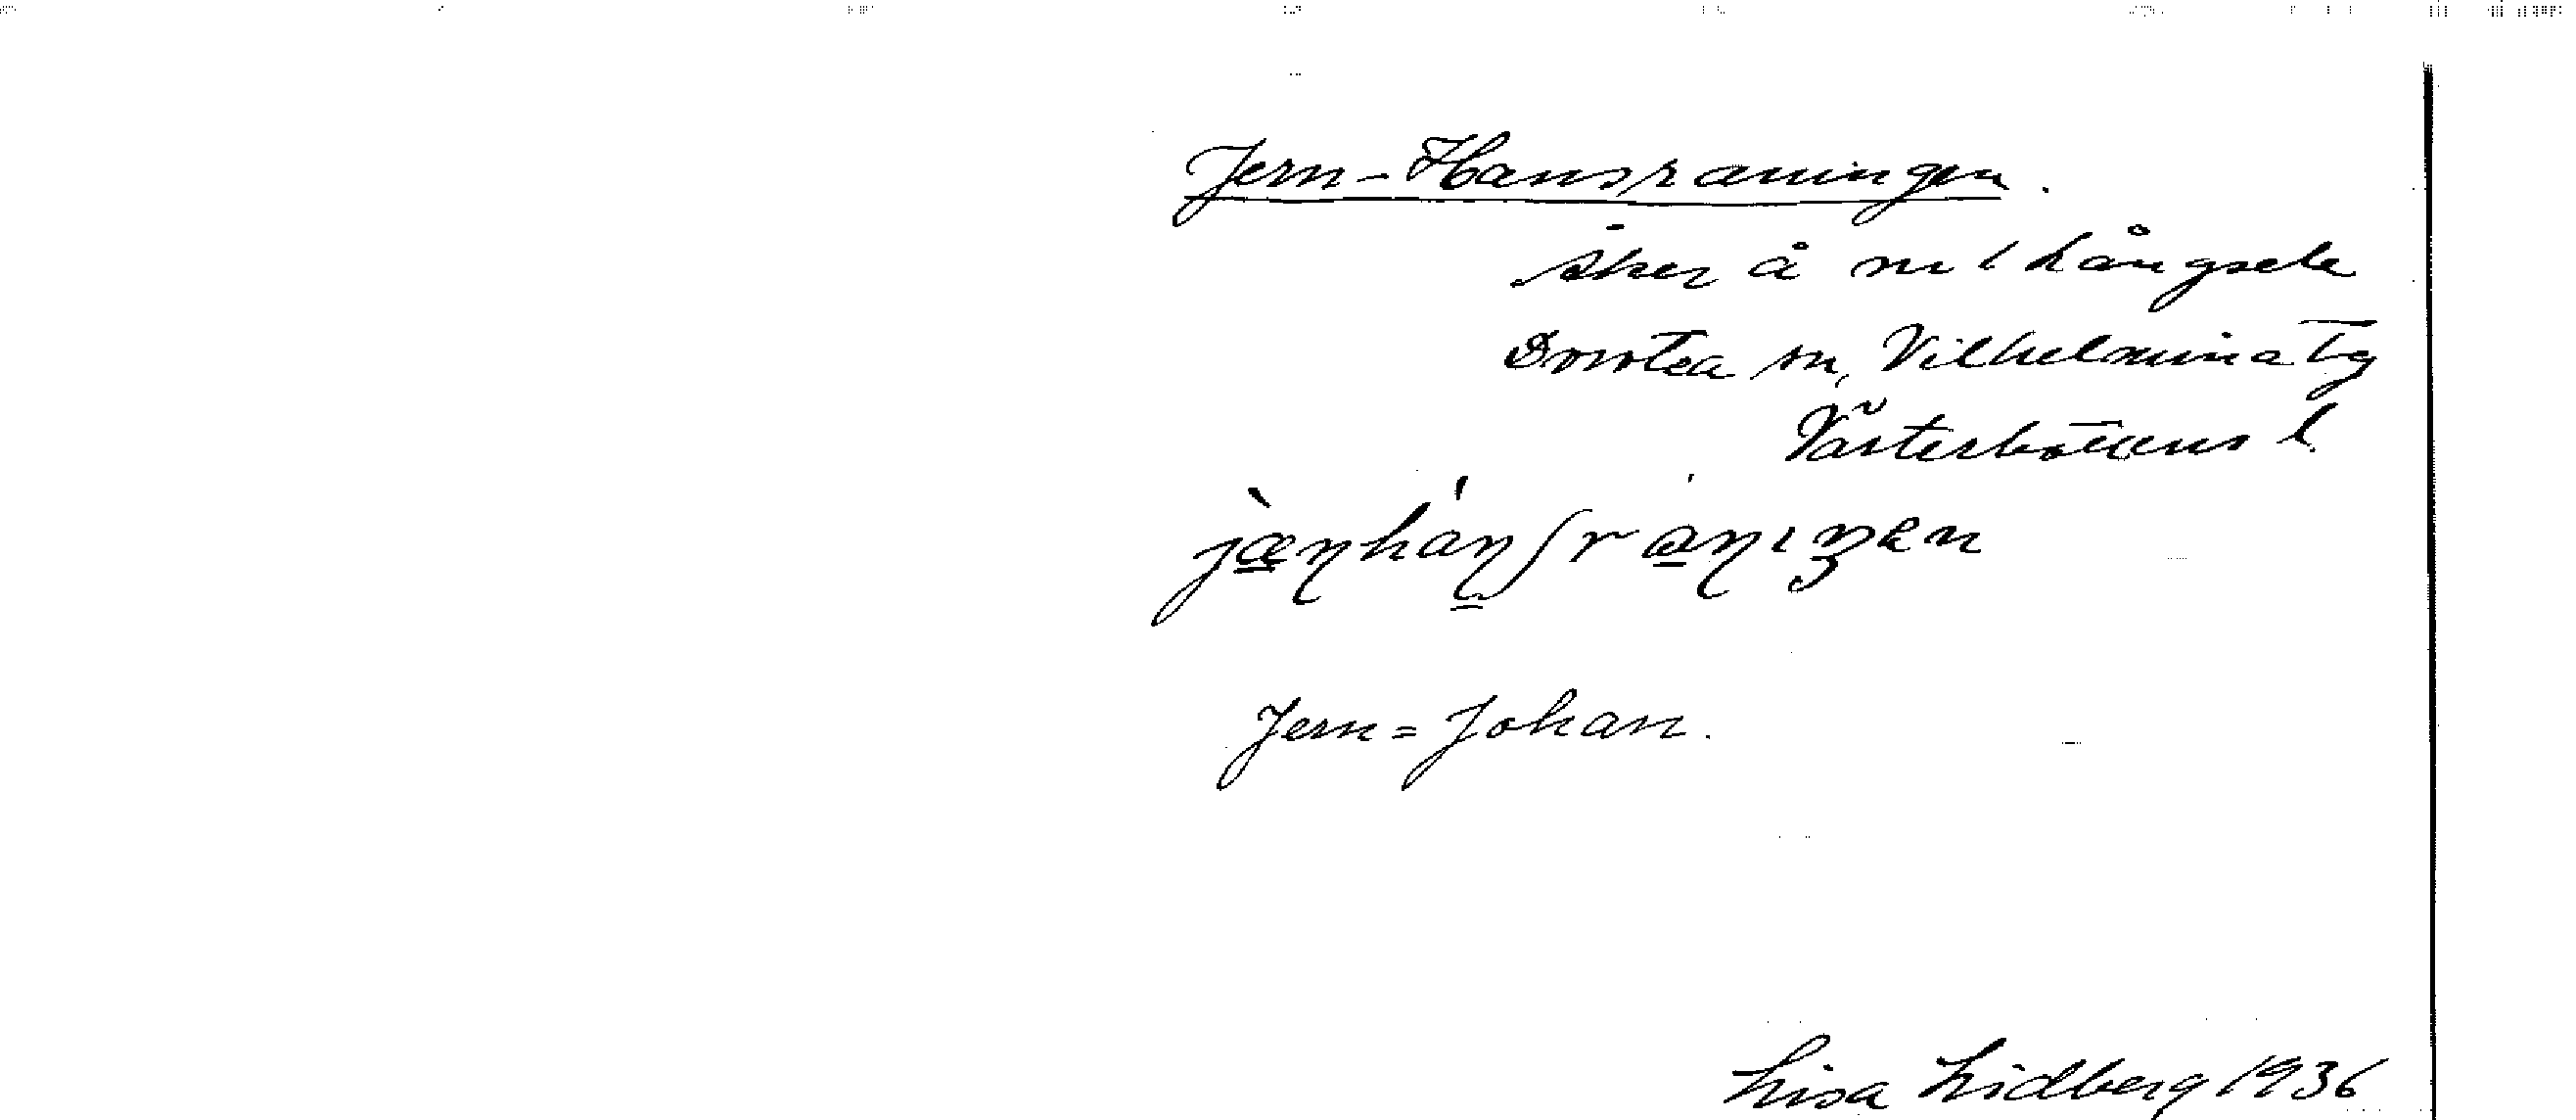 Jern-Hansraningen.
åker å nr 1 Långsele
Dorotea sn, Vilhelmina tg
Västerbottens l.
Jern = Johan.
Lisa Lidberg 1936